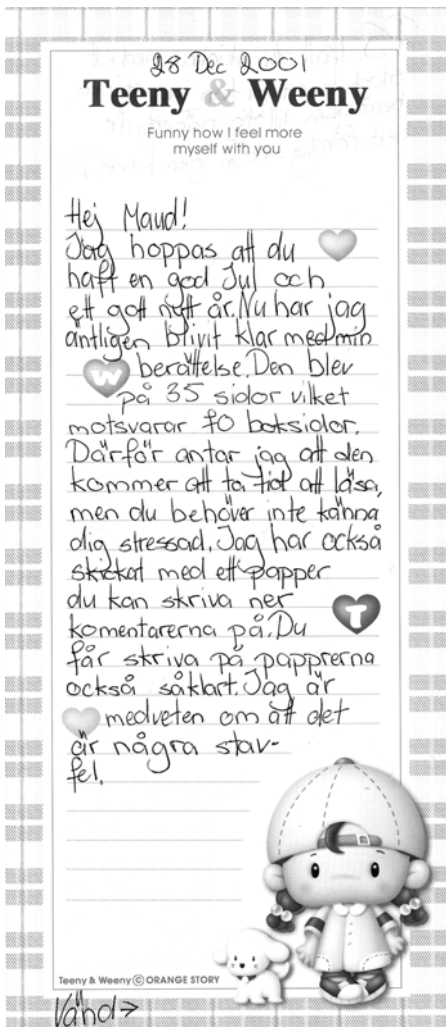 28 Dec 2001
Teeny & Weeny
Funny how I feel more
myself with you
Hej Maud!
Jag hoppas att du
haft en god Jul och
ett gott nytt år. Nu har jag
äntligen blivit klar med min
W berättelse. Den blev
på 35 sidor vilket
motsvarar 70 boksidor.
Därför antar jag att den
kommer att ta tid att läsa,
men du behöver inte känna
dig stressad. Jag har också
skickat med ett papper
du kan skriva ner
T
komentarerna på. Du
får skriva på papprerna
också såklart. Jag är
medveten om att det
är några stav-
fel.
Teeny & Weeny © ORANGE STORY
Vänd→